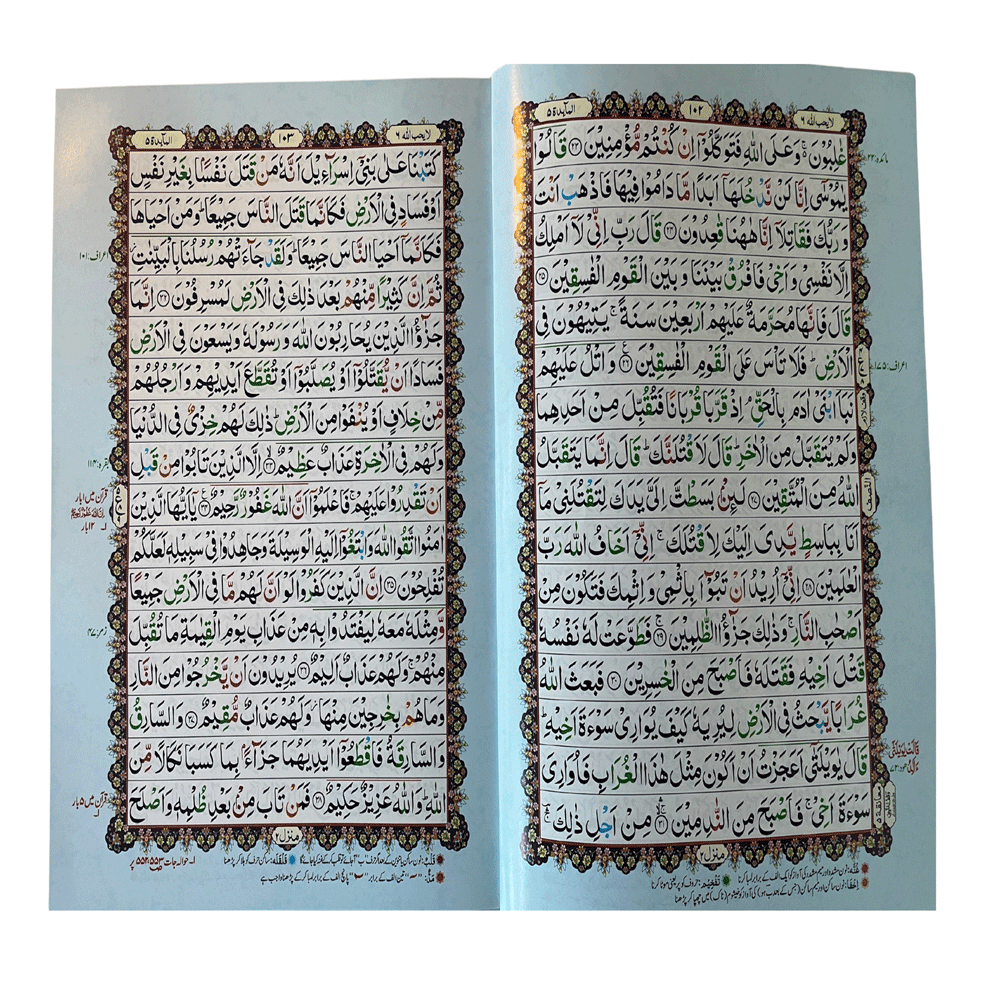 لا يحب الله ٦
١٠٢
المآئدة ٥
غٰلِبُوْنَ ۚ وَ عَلَى اللّٰهِ فَتَوَكَّلُوْۤا اِنْ كُنْتُمْ مُّؤْمِنِيْنَ ﴿۲۳﴾ قَالُوْا
يٰمُوْسٰۤى اِنَّا لَنْ نَّدْخُلَهَاۤ اَبَدًا مَّا دَامُوْا فِيْهَا فَاذْهَبْ اَنْتَ
وَ رَبُّكَ فَقَاتِلَاۤ اِنَّا هٰهُنَا قٰعِدُوْنَ ﴿۲۴﴾ قَالَ رَبِّ اِنِّيْ لَاۤ اَمْلِكُ
اِلَّا نَفْسِيْ وَ اَخِيْ فَافْرُقْ بَيْنَنَا وَ بَيْنَ الْقَوْمِ الْفٰسِقِيْنَ ﴿۲۵﴾
قَالَ فَاِنَّهَا مُحَرَّمَةٌ عَلَيْهِمْ اَرْبَعِيْنَ سَنَةً ۚ يَتِيْهُوْنَ فِي
الْاَرْضِ ؕ فَلَا تَاْسَ عَلَى الْقَوْمِ الْفٰسِقِيْنَ ﴿۲۶﴾ وَ اتْلُ عَلَيْهِمْ
نَبَاَ ابْنَيْ اٰدَمَ بِالْحَقِّ ۘ اِذْ قَرَّبَا قُرْبَانًا فَتُقُبِّلَ مِنْ اَحَدِهِمَا
وَ لَمْ يُتَقَبَّلْ مِنَ الْاٰخَرِ ؕ قَالَ لَاَقْتُلَنَّكَ ؕ قَالَ اِنَّمَا يَتَقَبَّلُ
اللّٰهُ مِنَ الْمُتَّقِيْنَ ﴿۲۷﴾ لَئِنْۢ بَسَطْتَّ اِلَيَّ يَدَكَ لِتَقْتُلَنِيْ مَاۤ
اَنَا بِبَاسِطٍ يَّدِيَ اِلَيْكَ لِاَقْتُلَكَ ۚ اِنِّيْۤ اَخَافُ اللّٰهَ رَبَّ
الْعٰلَمِيْنَ ﴿۲۸﴾ اِنِّيْۤ اُرِيْدُ اَنْ تَبُوْٓاَ بِاِثْمِيْ وَ اِثْمِكَ فَتَكُوْنَ مِنْ
اَصْحٰبِ النَّارِ ۚ وَ ذٰلِكَ جَزٰٓؤُا الظّٰلِمِيْنَ ﴿۲۹﴾ فَطَوَّعَتْ لَهٗ نَفْسُهٗ
قَتْلَ اَخِيْهِ فَقَتَلَهٗ فَاَصْبَحَ مِنَ الْخٰسِرِيْنَ ﴿۳۰﴾ فَبَعَثَ اللّٰهُ
غُرَابًا يَّبْحَثُ فِي الْاَرْضِ لِيُرِيَهٗ كَيْفَ يُوَارِيْ سَوْءَةَ اَخِيْهِ ؕ
قَالَ يٰوَيْلَتٰۤى اَعَجَزْتُ اَنْ اَكُوْنَ مِثْلَ هٰذَا الْغُرَابِ فَاُوَارِيَ
سَوْءَةَ اَخِيْ ۚ فَاَصْبَحَ مِنَ النّٰدِمِيْنَ ﴿۳۱﴾ مِنْ اَجْلِ ذٰلِكَ
منزل ٢
مائده: ٢٣
اعراف: ١٧٥
لا يحب الله ٦
١٠٣
المآئدة ٥
كَتَبْنَا عَلٰى بَنِيْۤ اِسْرَآءِيْلَ اَنَّهٗ مَنْ قَتَلَ نَفْسًۢا بِغَيْرِ نَفْسٍ
اَوْ فَسَادٍ فِي الْاَرْضِ فَكَاَنَّمَا قَتَلَ النَّاسَ جَمِيْعًا ؕ وَ مَنْ اَحْيَاهَا
فَكَاَنَّمَاۤ اَحْيَا النَّاسَ جَمِيْعًا ؕ وَ لَقَدْ جَآءَتْهُمْ رُسُلُنَا بِالْبَيِّنٰتِ
ثُمَّ اِنَّ كَثِيْرًا مِّنْهُمْ بَعْدَ ذٰلِكَ فِي الْاَرْضِ لَمُسْرِفُوْنَ ﴿۳۲﴾ اِنَّمَا
جَزٰٓؤُا الَّذِيْنَ يُحَارِبُوْنَ اللّٰهَ وَ رَسُوْلَهٗ وَ يَسْعَوْنَ فِي الْاَرْضِ
فَسَادًا اَنْ يُّقَتَّلُوْۤا اَوْ يُصَلَّبُوْۤا اَوْ تُقَطَّعَ اَيْدِيْهِمْ وَ اَرْجُلُهُمْ
مِّنْ خِلَافٍ اَوْ يُنْفَوْا مِنَ الْاَرْضِ ؕ ذٰلِكَ لَهُمْ خِزْيٌ فِي الدُّنْيَا
وَ لَهُمْ فِي الْاٰخِرَةِ عَذَابٌ عَظِيْمٌ ﴿۳۳﴾ اِلَّا الَّذِيْنَ تَابُوْا مِنْ قَبْلِ
اَنْ تَقْدِرُوْا عَلَيْهِمْ ۚ فَاعْلَمُوْۤا اَنَّ اللّٰهَ غَفُوْرٌ رَّحِيْمٌ ﴿۳۴﴾ يٰۤاَيُّهَا الَّذِيْنَ
اٰمَنُوا اتَّقُوا اللّٰهَ وَ ابْتَغُوْۤا اِلَيْهِ الْوَسِيْلَةَ وَ جَاهِدُوْا فِيْ سَبِيْلِهٖ لَعَلَّكُمْ
تُفْلِحُوْنَ ﴿۳۵﴾ اِنَّ الَّذِيْنَ كَفَرُوْا لَوْ اَنَّ لَهُمْ مَّا فِي الْاَرْضِ جَمِيْعًا
وَّ مِثْلَهٗ مَعَهٗ لِيَفْتَدُوْا بِهٖ مِنْ عَذَابِ يَوْمِ الْقِيٰمَةِ مَا تُقُبِّلَ
مِنْهُمْ ۚ وَ لَهُمْ عَذَابٌ اَلِيْمٌ ﴿۳۶﴾ يُرِيْدُوْنَ اَنْ يَّخْرُجُوْا مِنَ النَّارِ
وَ مَا هُمْ بِخٰرِجِيْنَ مِنْهَا ۫ وَ لَهُمْ عَذَابٌ مُّقِيْمٌ ﴿۳۷﴾ وَ السَّارِقُ
وَ السَّارِقَةُ فَاقْطَعُوْۤا اَيْدِيَهُمَا جَزَآءًۢ بِمَا كَسَبَا نَكَالًا مِّنَ
اللّٰهِ ؕ وَ اللّٰهُ عَزِيْزٌ حَكِيْمٌ ﴿۳۸﴾ فَمَنْ تَابَ مِنْۢ بَعْدِ ظُلْمِهٖ وَ اَصْلَحَ
منزل ٢
اعراف: ١٠١
بقره: ١١٤
زمر: ٤٧